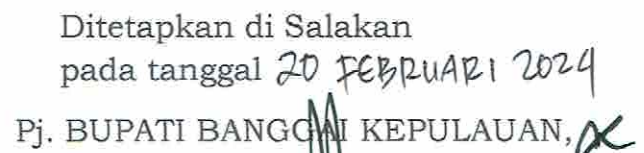 Ditetapkan di Salakan
pada tanggal 20 FEBRUARI 2024
Pj. BUPATI BANGGAI KEPULAUAN,